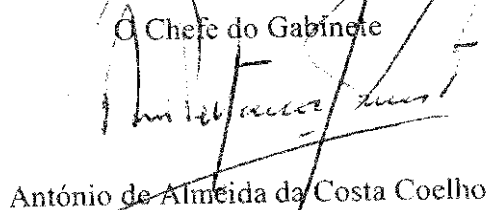 O Chefe do Gabinete
António de Almeida da Costa Coelho